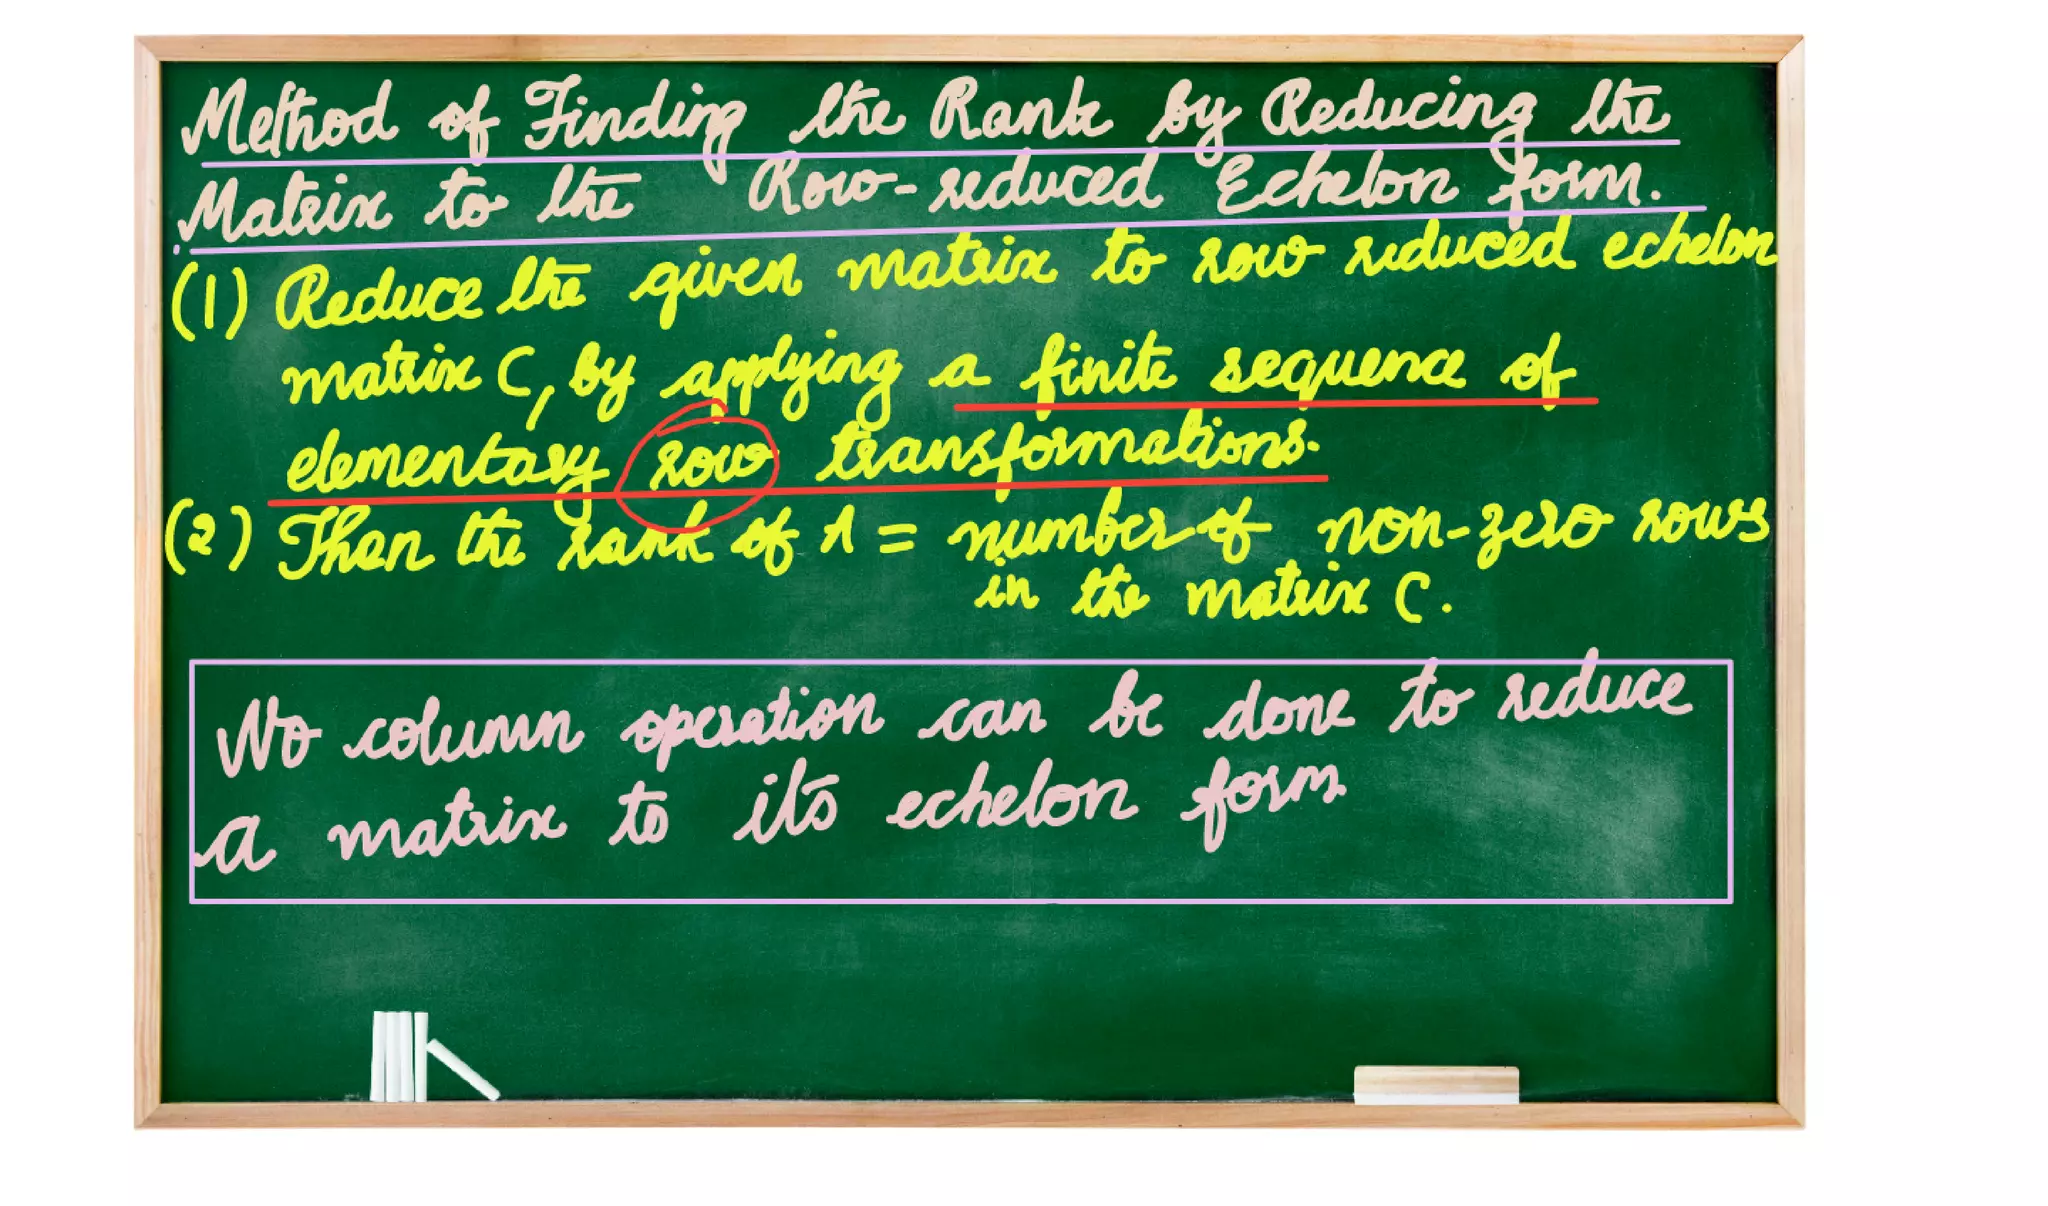 Method of Finding the Rank by Reducing the
Matrix to the Row-reduced Echelon form.
(1) Reduce the given matrix to row reduced echelon
matrix C, by applying a finite sequence of
elementary row transformations.
(2) Then the rank of A = number of non-zero rows
in the matrix C.
No column operation can be done to reduce
a matrix to its echelon form